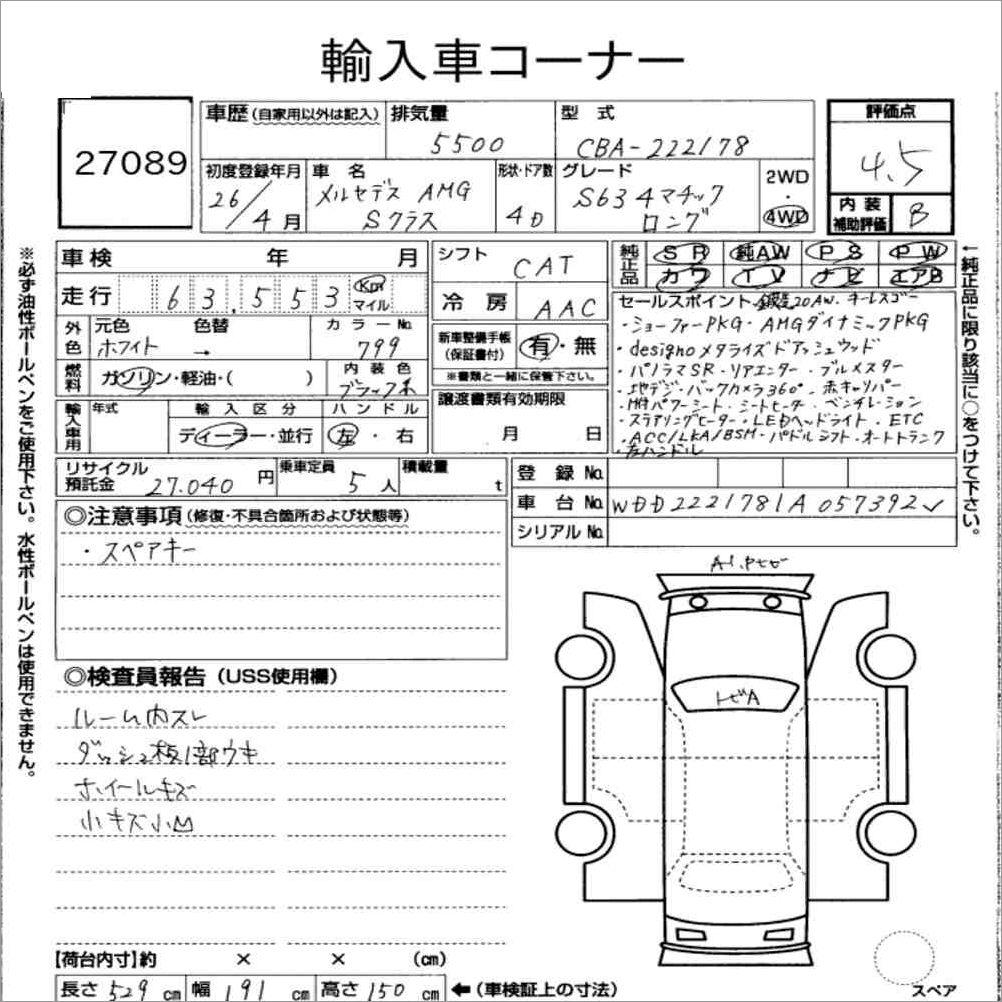 輸入車コーナー
27089
車歴(自家用以外は記入)
排気量
5500
型 式
CBA-222178
評価点
4.5
初度登録年月
26/4月
車 名
メルセデス AMG
Sクラス
形状・ドア数
4D
グレード
S63 4マチック
ロング
2WD
・
4WD
内 装
補助評価
B
車検 年 月
走行 63,553 Km
マイル
シフト
CAT
冷 房
AAC
純正品
SR 純AW PS PW
カワ TV ナビ エアB
外色
元色 色替
ホワイト →
カラーNo.
799
燃料
ガソリン・軽油・( )
内 装 色
ブラック系
新車整備手帳
(保証書付)
有・無
※書類と一緒に保管下さい。
セールスポイント 鍛造20AW. キーレスゴー
・ショーファーPKG・AMGダイナミックPKG
・designoメタライズドアッシュウッド
・パノラマSR・リアエンター・ブルメスター
・地デジ・バックカメラ360°・赤キャリパー
・M付パワーシート・シートヒーター・ベンチレーション
・ステアリングヒーター・LEDヘッドライト・ETC
・ACC/LKA/BSM・パドルシフト・オートトランク
・左ハンドル
輸入車用
年式
輸 入 区 分
ディーラー・並行
ハ ン ド ル
左・右
譲渡書類有効期限
月 日
リサイクル
預託金 27.040 円
乗車定員
5 人
積載量
t
登 録 No.
車 台 No. WDD2221781A057392
シリアル No.
◎注意事項(修復・不具合箇所および状態等)
・スペアキー
◎検査員報告(USS使用欄)
ルーム内スレ
ダッシュ板1部ウキ
ホイールキズ
小キズ小凹
A1.Pトビ
トビA
【荷台内寸】約 × × (cm)
長さ 529 cm 幅 191 cm 高さ 150 cm ←(車検証上の寸法)
スペア
※必ず油性ボールペンをご使用下さい。水性ボールペンは使用できません。
←純正品に限り該当に○をつけて下さい。